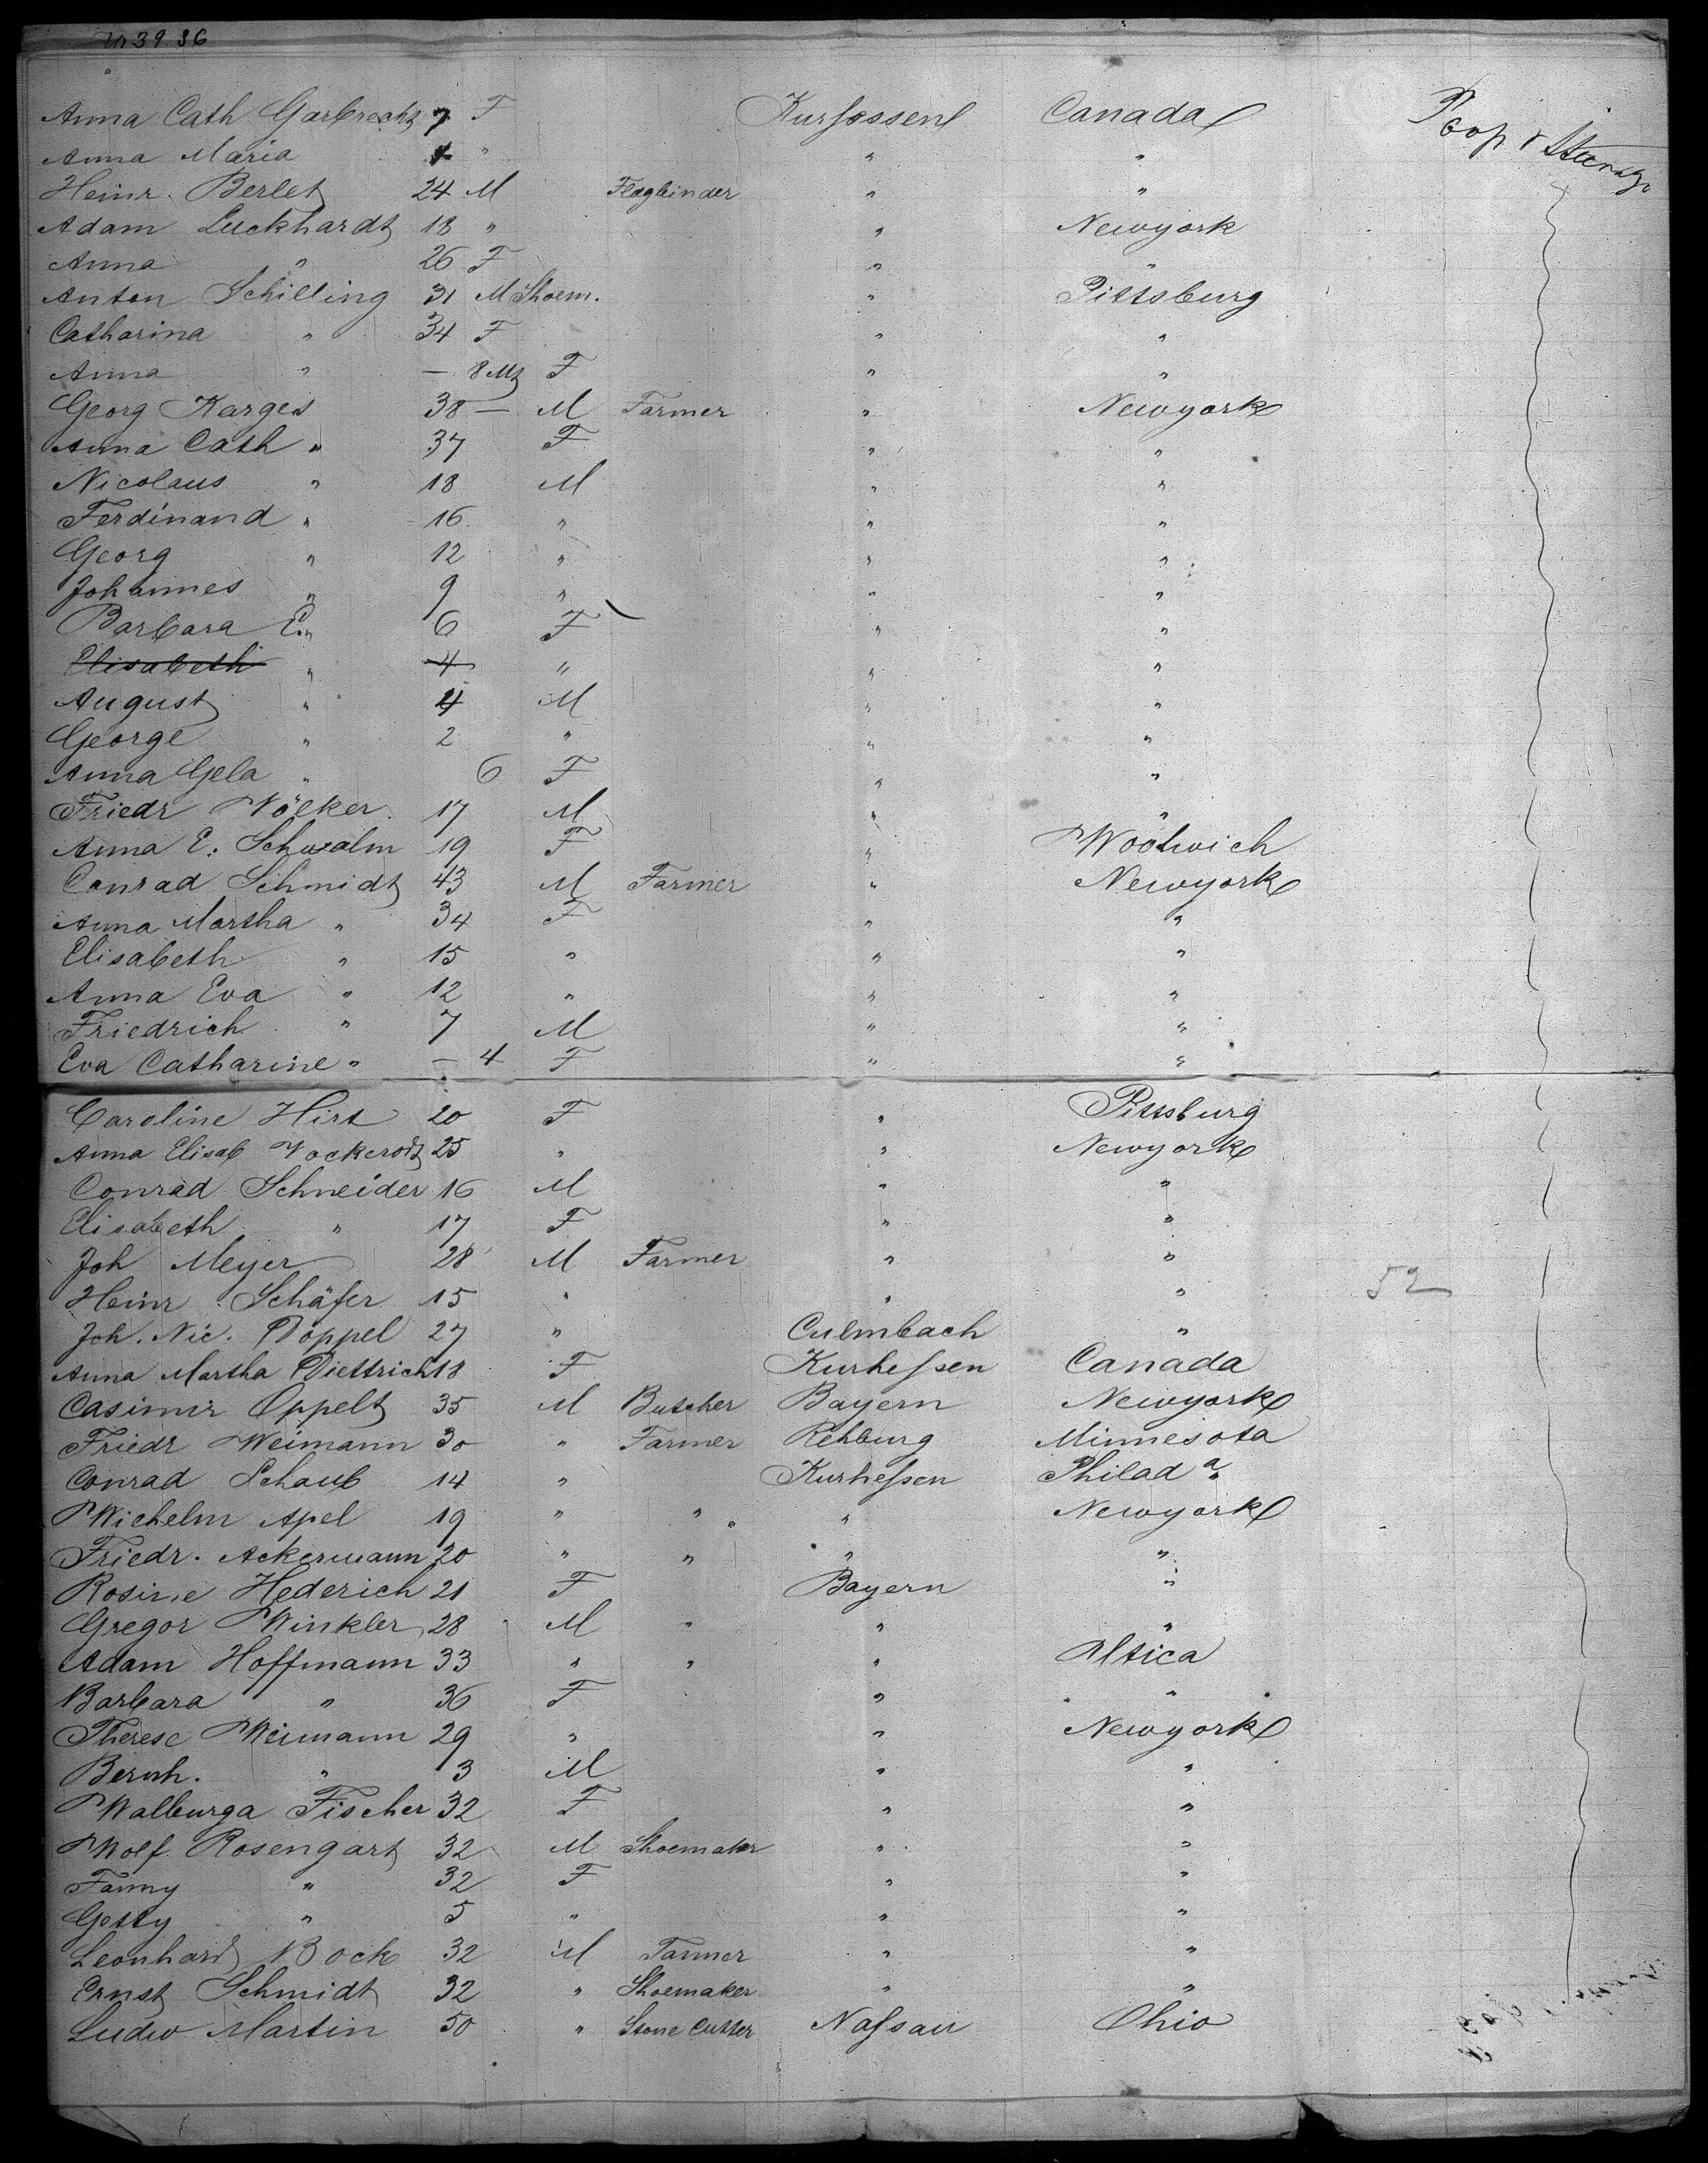 39 86
Anna Cath Garbrecht 7 F Kurhessen Canada
Anna Maria " " "
Heinr. Berlet 24 M " "
Adam Luckhardt 18 " " Newyork
Anna " 26 F " "
Anton Schilling 31 M Shoem. " Pittsburg
Catharina " 34 F " "
Anna " — 8 Mt F " "
Georg Karges 38 — M Farmer " Newyork
Anna Cath " 37 F " "
Nicolaus " 18 M " "
Ferdinand " 16 " " "
Georg " 12 " " "
Johannes " 9 " " "
Barbara E. " 6 F " "
Elisabeth " 4 " " "
August " 4 M " "
George " 2 " " "
Anna Gela " 6 F " "
Friedr Völker 17 M " "
Anna E. Schwalm 19 F " Woolwich
Conrad Schmidt 43 M Farmer " Newyork
Anna Martha " 34 F " "
Elisabeth " 15 " " "
Anna Eva " 12 " " "
Friedrich " 7 M " "
Eva Catharine " — 4 F " "
Caroline Hirt 20 F " Pittsburg
Anna Elisab Vockerodt 25 " " Newyork
Conrad Schneider 16 M " "
Elisabeth " 17 F " "
Joh Meyer 28 M Farmer " "
Heinr Schäfer 15 " " " 52
Joh. Nic. Döppel 27 " Culmbach "
Anna Martha Diettrich 18 F Kurhessen Canada
Casimir Oppelt 35 M Butcher Bayern Newyork
Friedr Weimann 30 " Farmer Rehburg Minnesota
Conrad Schaub 14 " Kurhessen Philada
Wilhelm Apel 19 " " " Newyork
Friedr. Ackermann 20 " " " "
Rosine Hederich 21 F Bayern "
Gregor Winkler 28 M " " "
Adam Hoffmann 33 " " " Utica
Barbara " 36 F " "
Therese Weimann 29 " " Newyork
Bernh. " 3 M " "
Walburga Fischer 32 F " "
Wolf Rosengart 32 M Shoemaker " "
Fanny " 32 F " "
Getty " 5 " " "
Leonhard Bock 32 M Farmer " "
Ernst Schmidt 32 " Shoemaker " "
Ludw Martin 50 " Stone Cutter Nassau Ohio